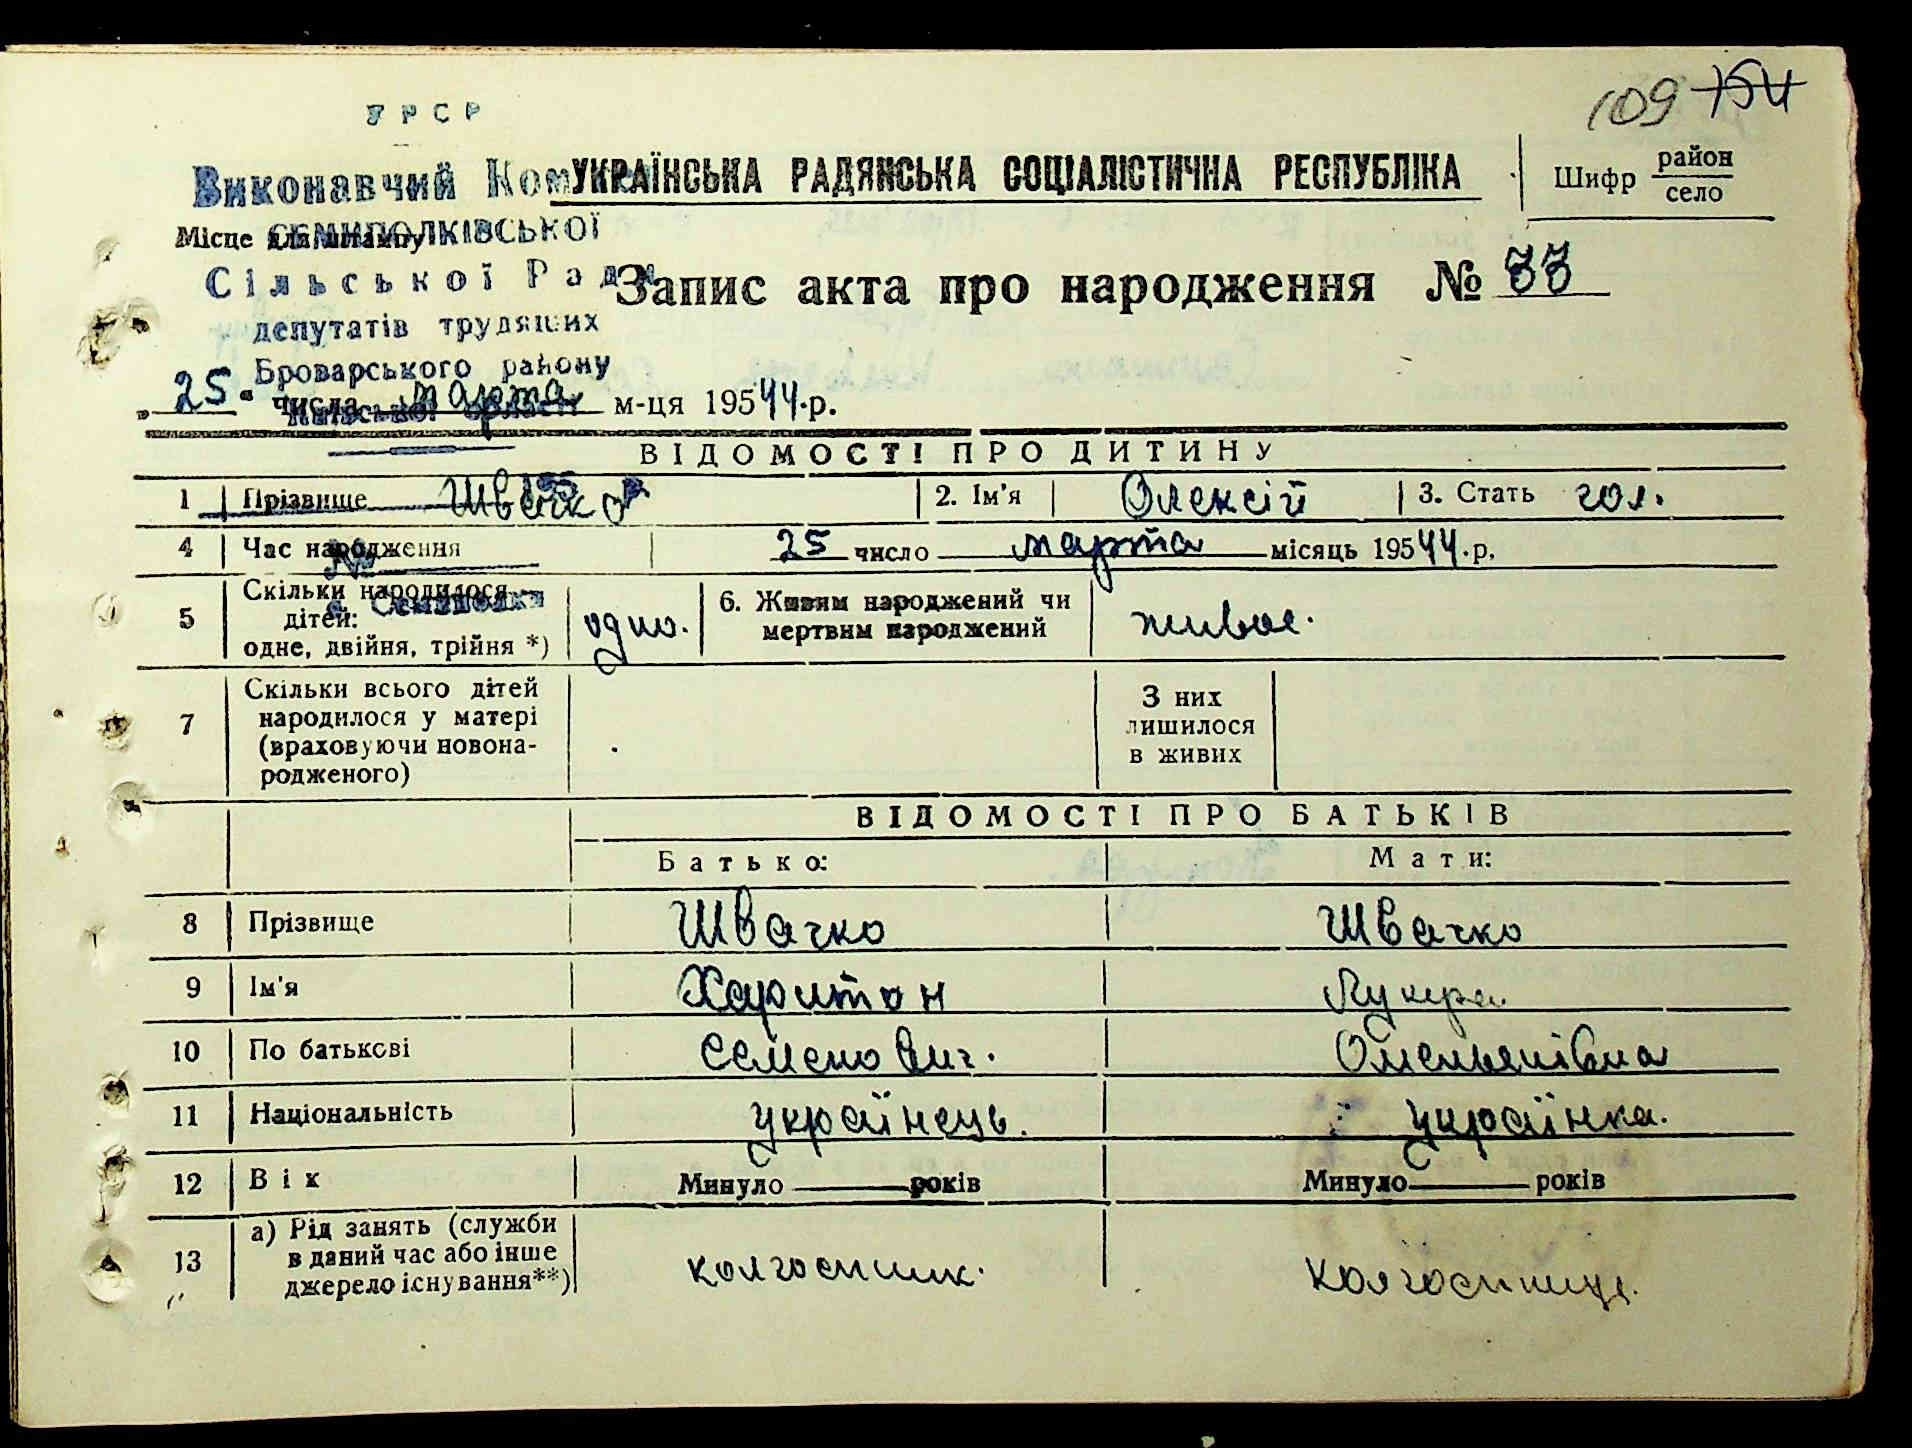 109 154
УРСР
Виконавчий Ком
УКРАЇНСЬКА РАДЯНСЬКА СОЦІАЛІСТИЧНА РЕСПУБЛІКА
Шифр район
село
Місце для штампу
СЕМИПОЛКІВСЬКОЇ
Сільської Ради
Запис акта про народження №
депутатів трудящих
Броварського району
„25“ числа марта м-ця 195 44.р.
Київської області
ВІДОМОСТІ ПРО ДИТИНУ
1 Прізвище Швачко 2. Ім'я Олексій 3. Стать чол.
4 Час народження 25 число марта місяць 195 44.р.
№
5 Скільки народилося
с. Семиполки
дітей:
одне, двійня, трійня *) одно.
6. Живим народжений чи
мертвим народжений живое.
7 Скільки всього дітей
народилося у матері
(враховуючи новона-
родженого)
З них
лишилося
в живих
ВІДОМОСТІ ПРО БАТЬКІВ
Батько: Мати:
8 Прізвище Швачко Швачко
9 Ім'я Харитон Лукера
10 По батькові Семенович. Омельянівна
11 Національність українець. українка.
12 Вік Минуло років Минуло років
13 а) Рід занять (служби
в даний час або інше
джерело існування**)
колгоспник. колгоспниця.